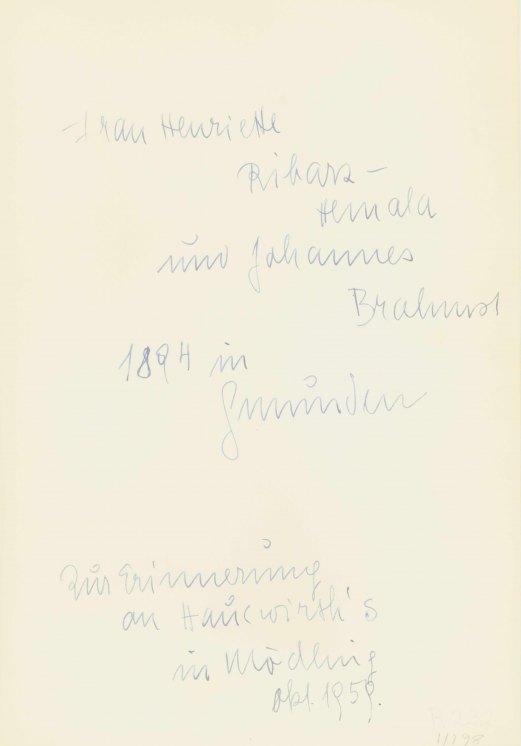 Frau Henriette
Ribarz –
Hemala
und Johannes
Brahms
1894 in
Gmunden
Zur Erinnerung
an Hauswirth's
in Mödling
Okt. 1959.
R 232